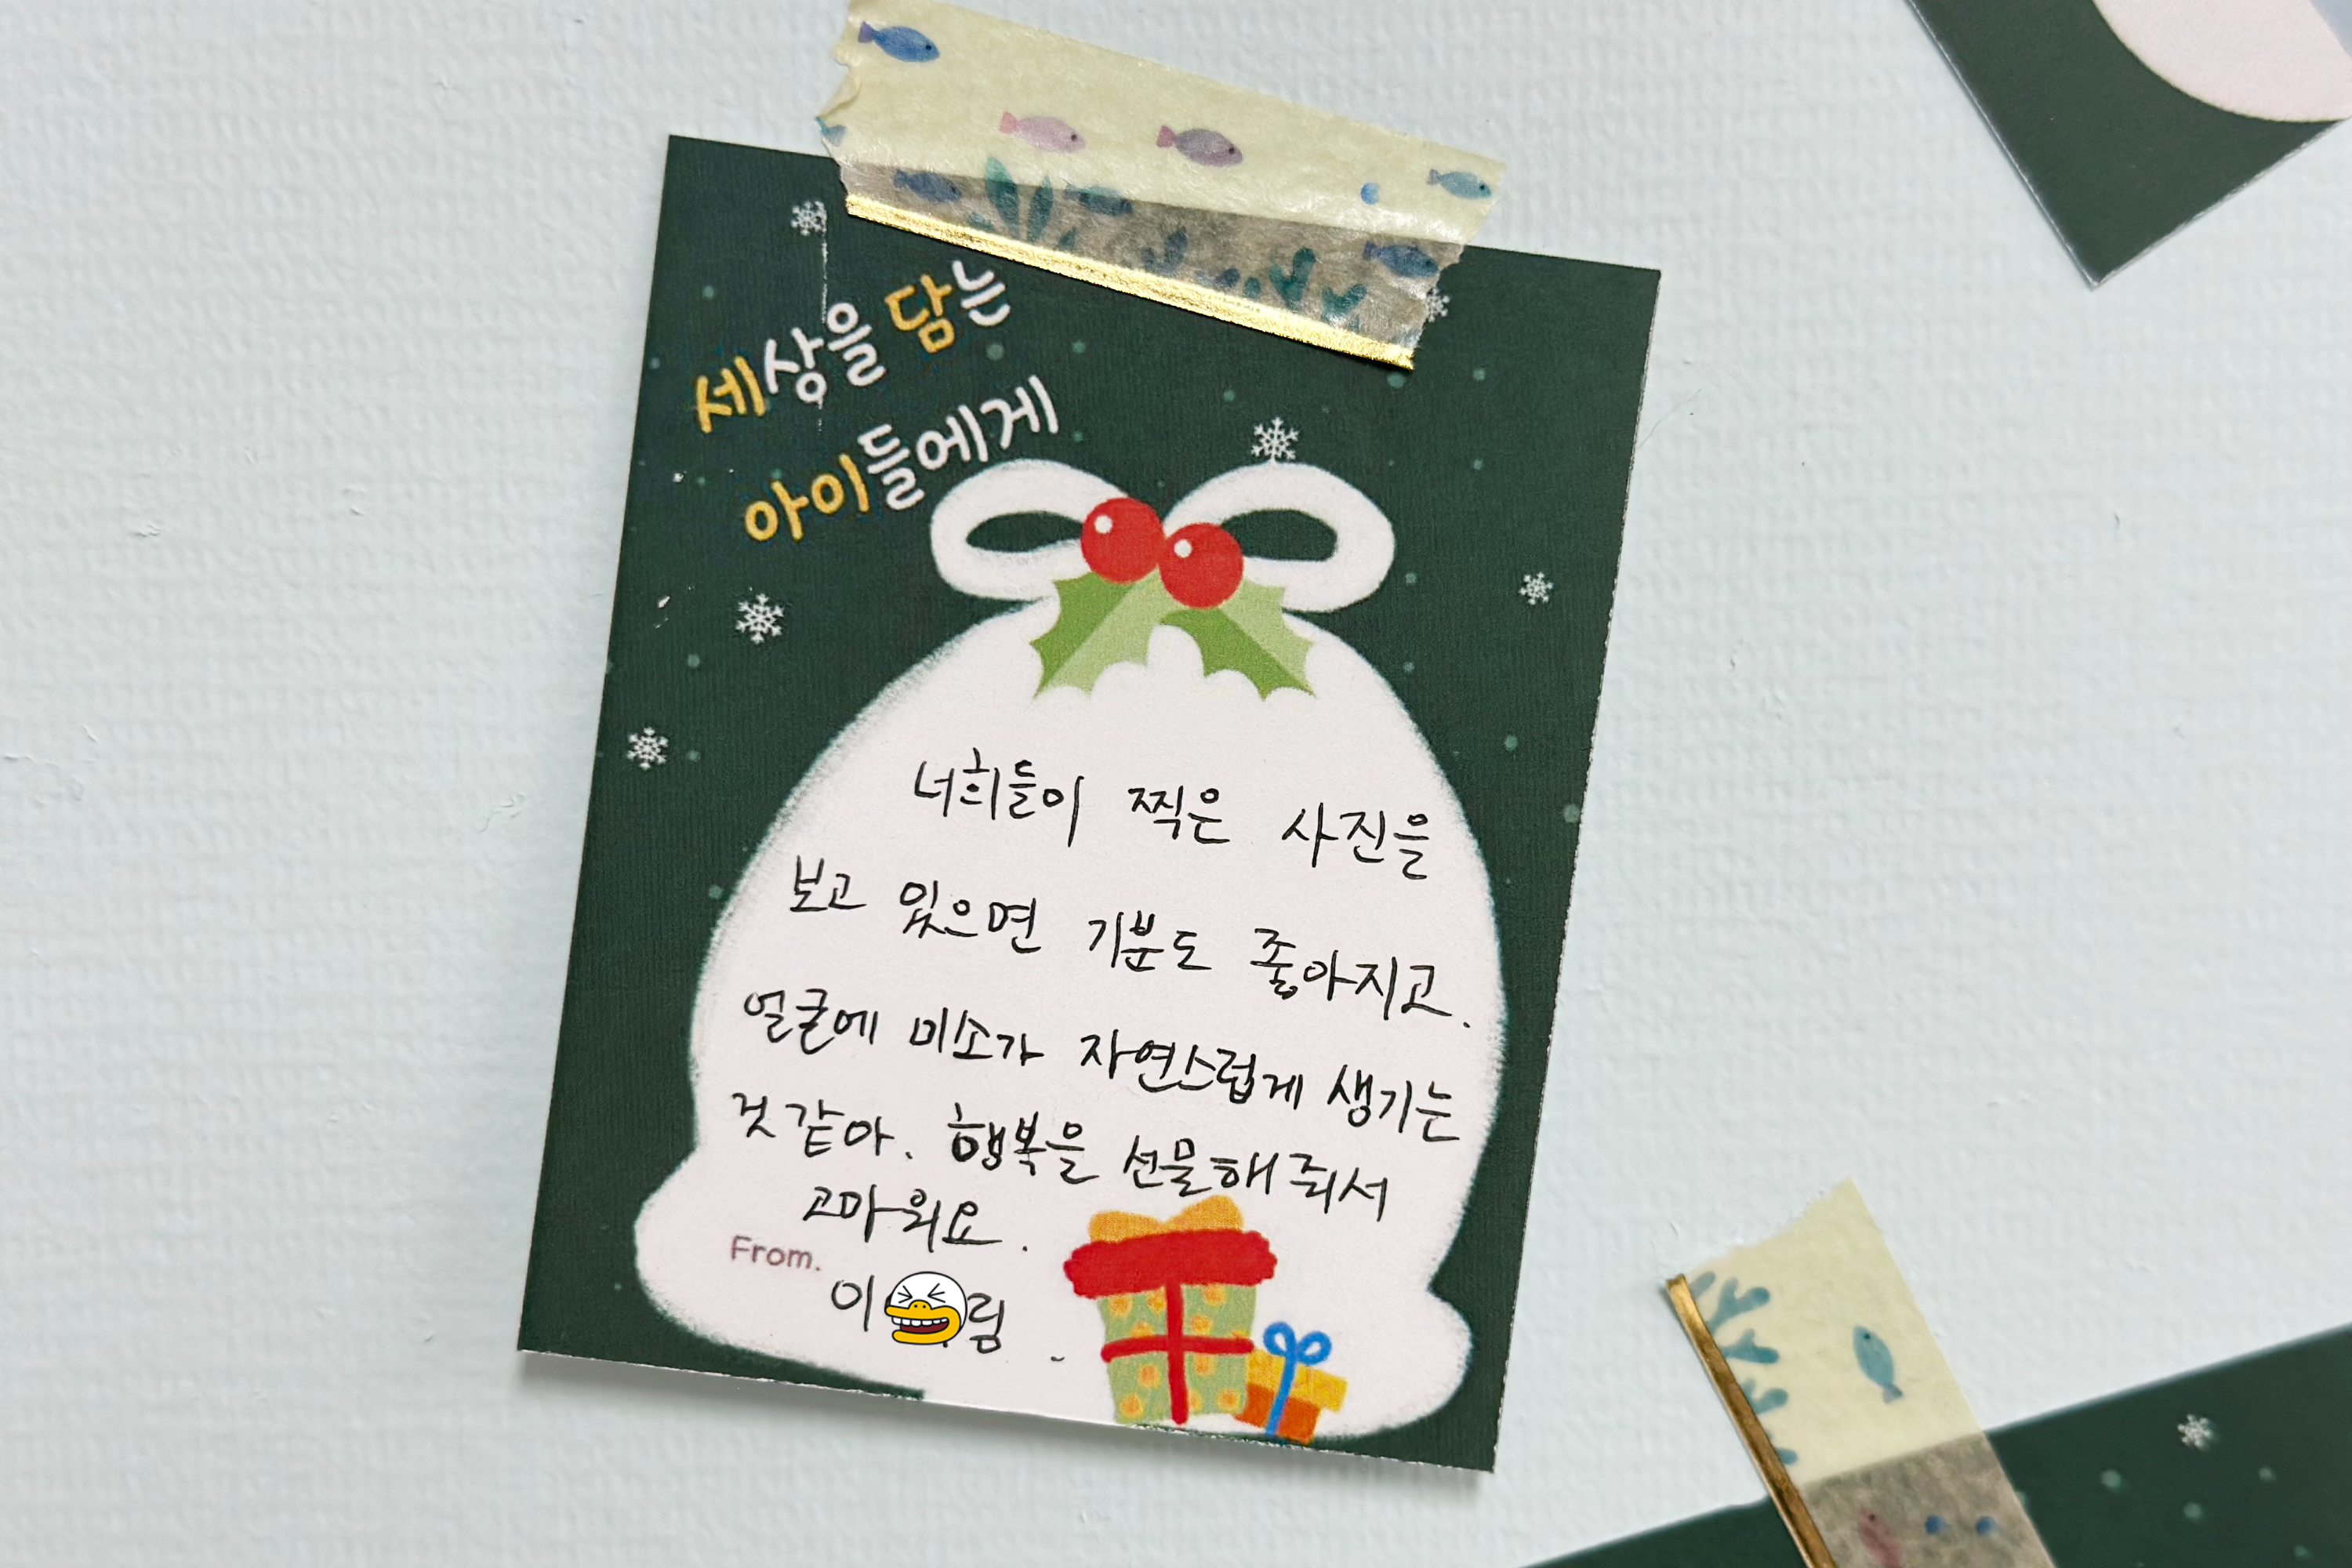 세상을 담는
아이들에게
너희들이 찍은 사진을
보고 있으면 기분도 좋아지고.
얼굴에 미소가 자연스럽게 생기는
것 같아. 행복을 선물해줘서
고마워요.
From.
이 림